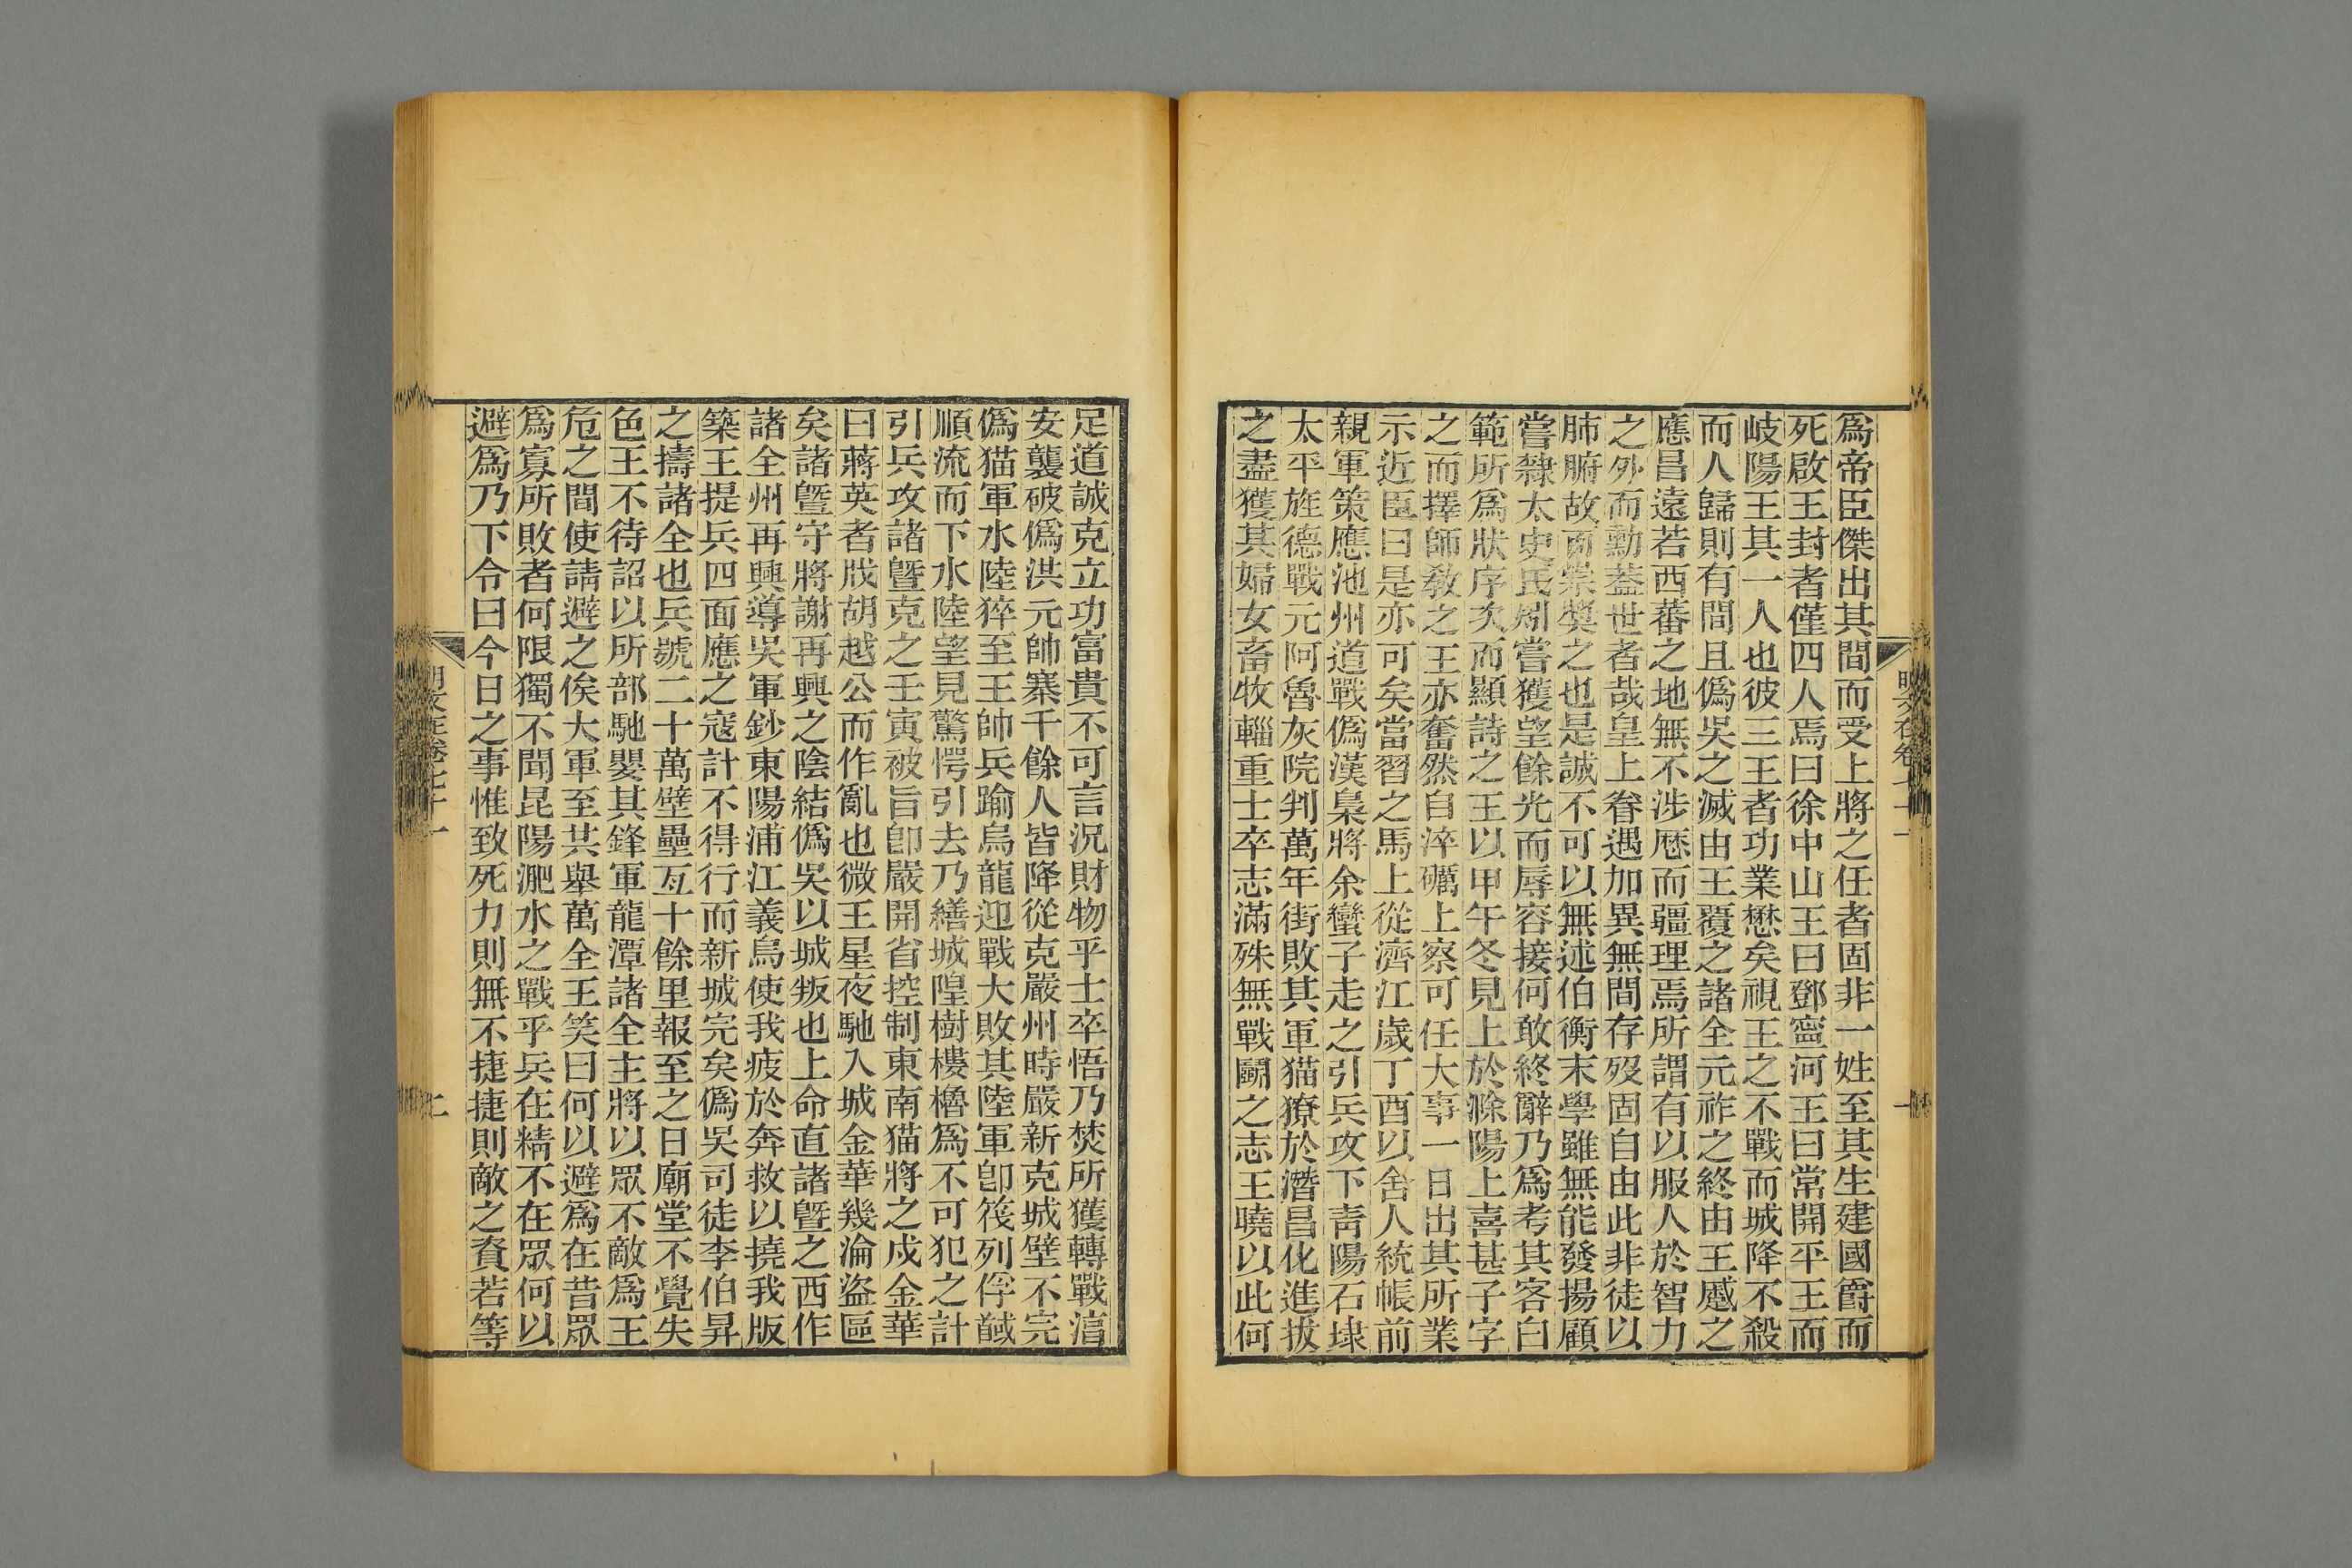 爲帝臣傑出其間而受上將之任者固非一姓至其生建國爵而
死啟王封者僅四人焉曰徐中山王曰鄧寧河王曰常開平王而
岐陽王其一人也彼三王者功業懋矣視王之不戰而城降不殺
而人歸則有間且僞吳之滅由王覆之諸全元祚之終由王蹙之
應昌遠若西蕃之地無不涉歷而疆理焉所謂有以服人於智力
之外而勳葢世者哉皇上眷遇加異無間存歿固自由此非徒以
肺腑故而崇奬之也是誠不可以無述伯衡末學雖無能發揚顧
嘗隸太史氏矧嘗獲望餘光而辱容接何敢終辭乃爲考其客白
範所爲狀序次而顯詩之王以甲午冬見上於滁陽上喜甚子字
之而擇師敎之王亦奮然自淬礪上察可任大事一日出其所業
示近臣曰是亦可矣當習之馬上從濟江歲丁酉以舍人統帳前
親軍策應池州道戰僞漢梟將余蠻子走之引兵攻下靑陽石埭
太平旌德戰元阿魯灰院判萬年街敗其軍猫獠於潛昌化進拔
之盡獲其婦女畜牧輜重士卒志滿殊無戰鬭之志王曉以此何
明文在卷七十一
一
足道誠克立功富貴不可言況財物乎士卒悟乃焚所獲轉戰淯
安襲破僞洪元帥寨千餘人皆降從克嚴州時嚴新克城壁不完
僞猫軍水陸猝至王帥兵踰烏龍迎戰大敗其陸軍卽筏列俘馘
順流而下水陸望見驚愕引去乃繕城隍樹樓櫓爲不可犯之計
引兵攻諸曁克之壬寅被旨卽嚴開省控制東南猫將之戍金華
曰蔣英者戕胡越公而作亂也微王星夜馳入城金華幾淪盜區
矣諸曁守將謝再興之陰結僞吳以城叛也上命直諸曁之西作
諸全州再興導吳軍鈔東陽浦江義烏使我疲於奔救以撓我版
築王提兵四面應之寇計不得行而新城完矣僞吳司徒李伯昇
之擣諸全也兵號二十萬壁壘亙十餘里報至之日廟堂不覺失
色王不待詔以所部馳嬰其鋒軍龍潭諸全主將以眾不敵爲王
危之間使請避之俟大軍至共舉萬全王笑曰何以避爲在昔眾
爲寡所敗者何限獨不聞昆陽淝水之戰乎兵在精不在眾何以
避爲乃下令曰今日之事惟致死力則無不捷捷則敵之資若等
明文在卷七十一
二